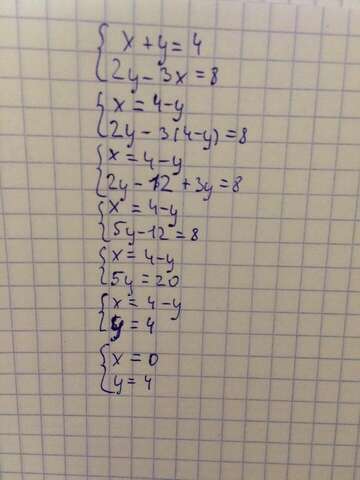 x + y = 4
2y - 3x = 8
x = 4-y
2y - 3(4-y) = 8
x = 4-y
2y - 12 + 3y = 8
x = 4-y
5y - 12 = 8
x = 4-y
5y = 20
x = 4-y
y = 4
x = 0
y = 4